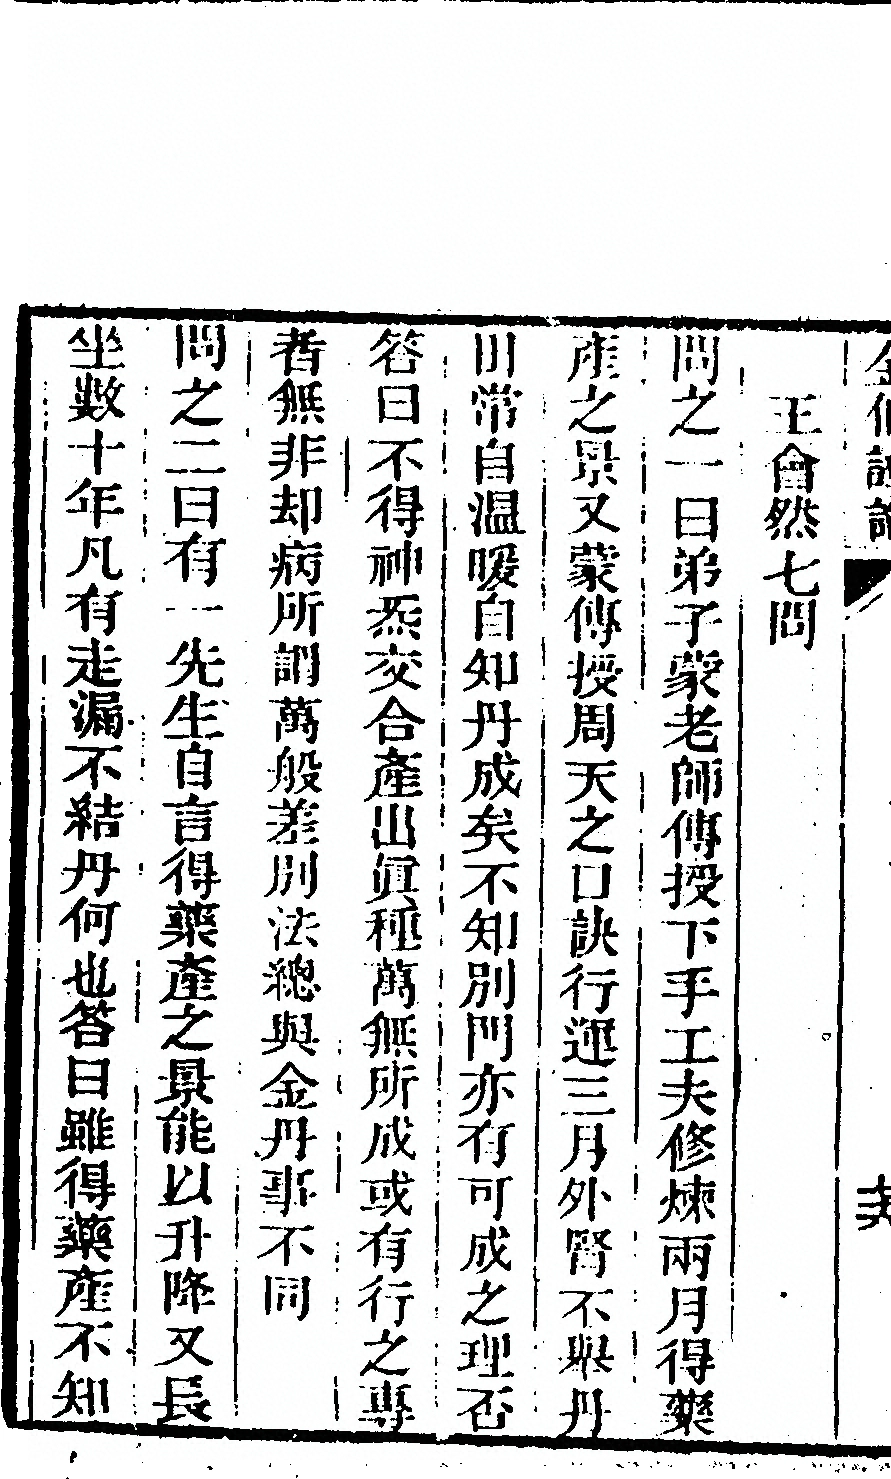 金仙證論
王會然七問
問之一曰弟子蒙老師傳授下手工夫修煉兩月得藥
產之景又蒙傳授周天之口訣行運三月外腎不舉丹
田常自溫暖自知丹成矣不知別門亦有可成之理否
答曰不得神炁交合產出眞種萬無所成或有行之專
者無非却病所謂萬般差別法總與金丹事不同
問之二曰有一先生自言得藥產之景能以升降又長
坐數十年凡有走漏不結丹何也答曰雖得藥產不知